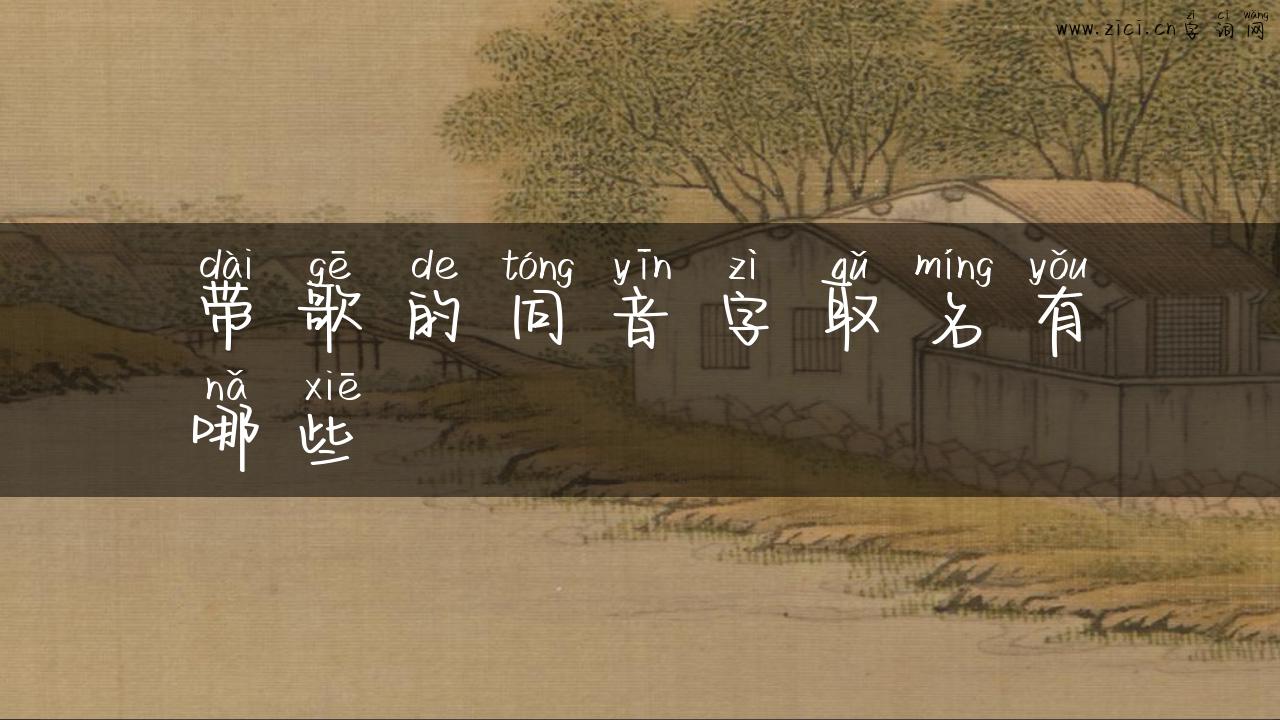 zì cí wǎng
www.zici.cn字词网
dài gē de tóng yīn zì qǔ míng yǒu
带歌的同音字取名有
nǎ xiē
哪些